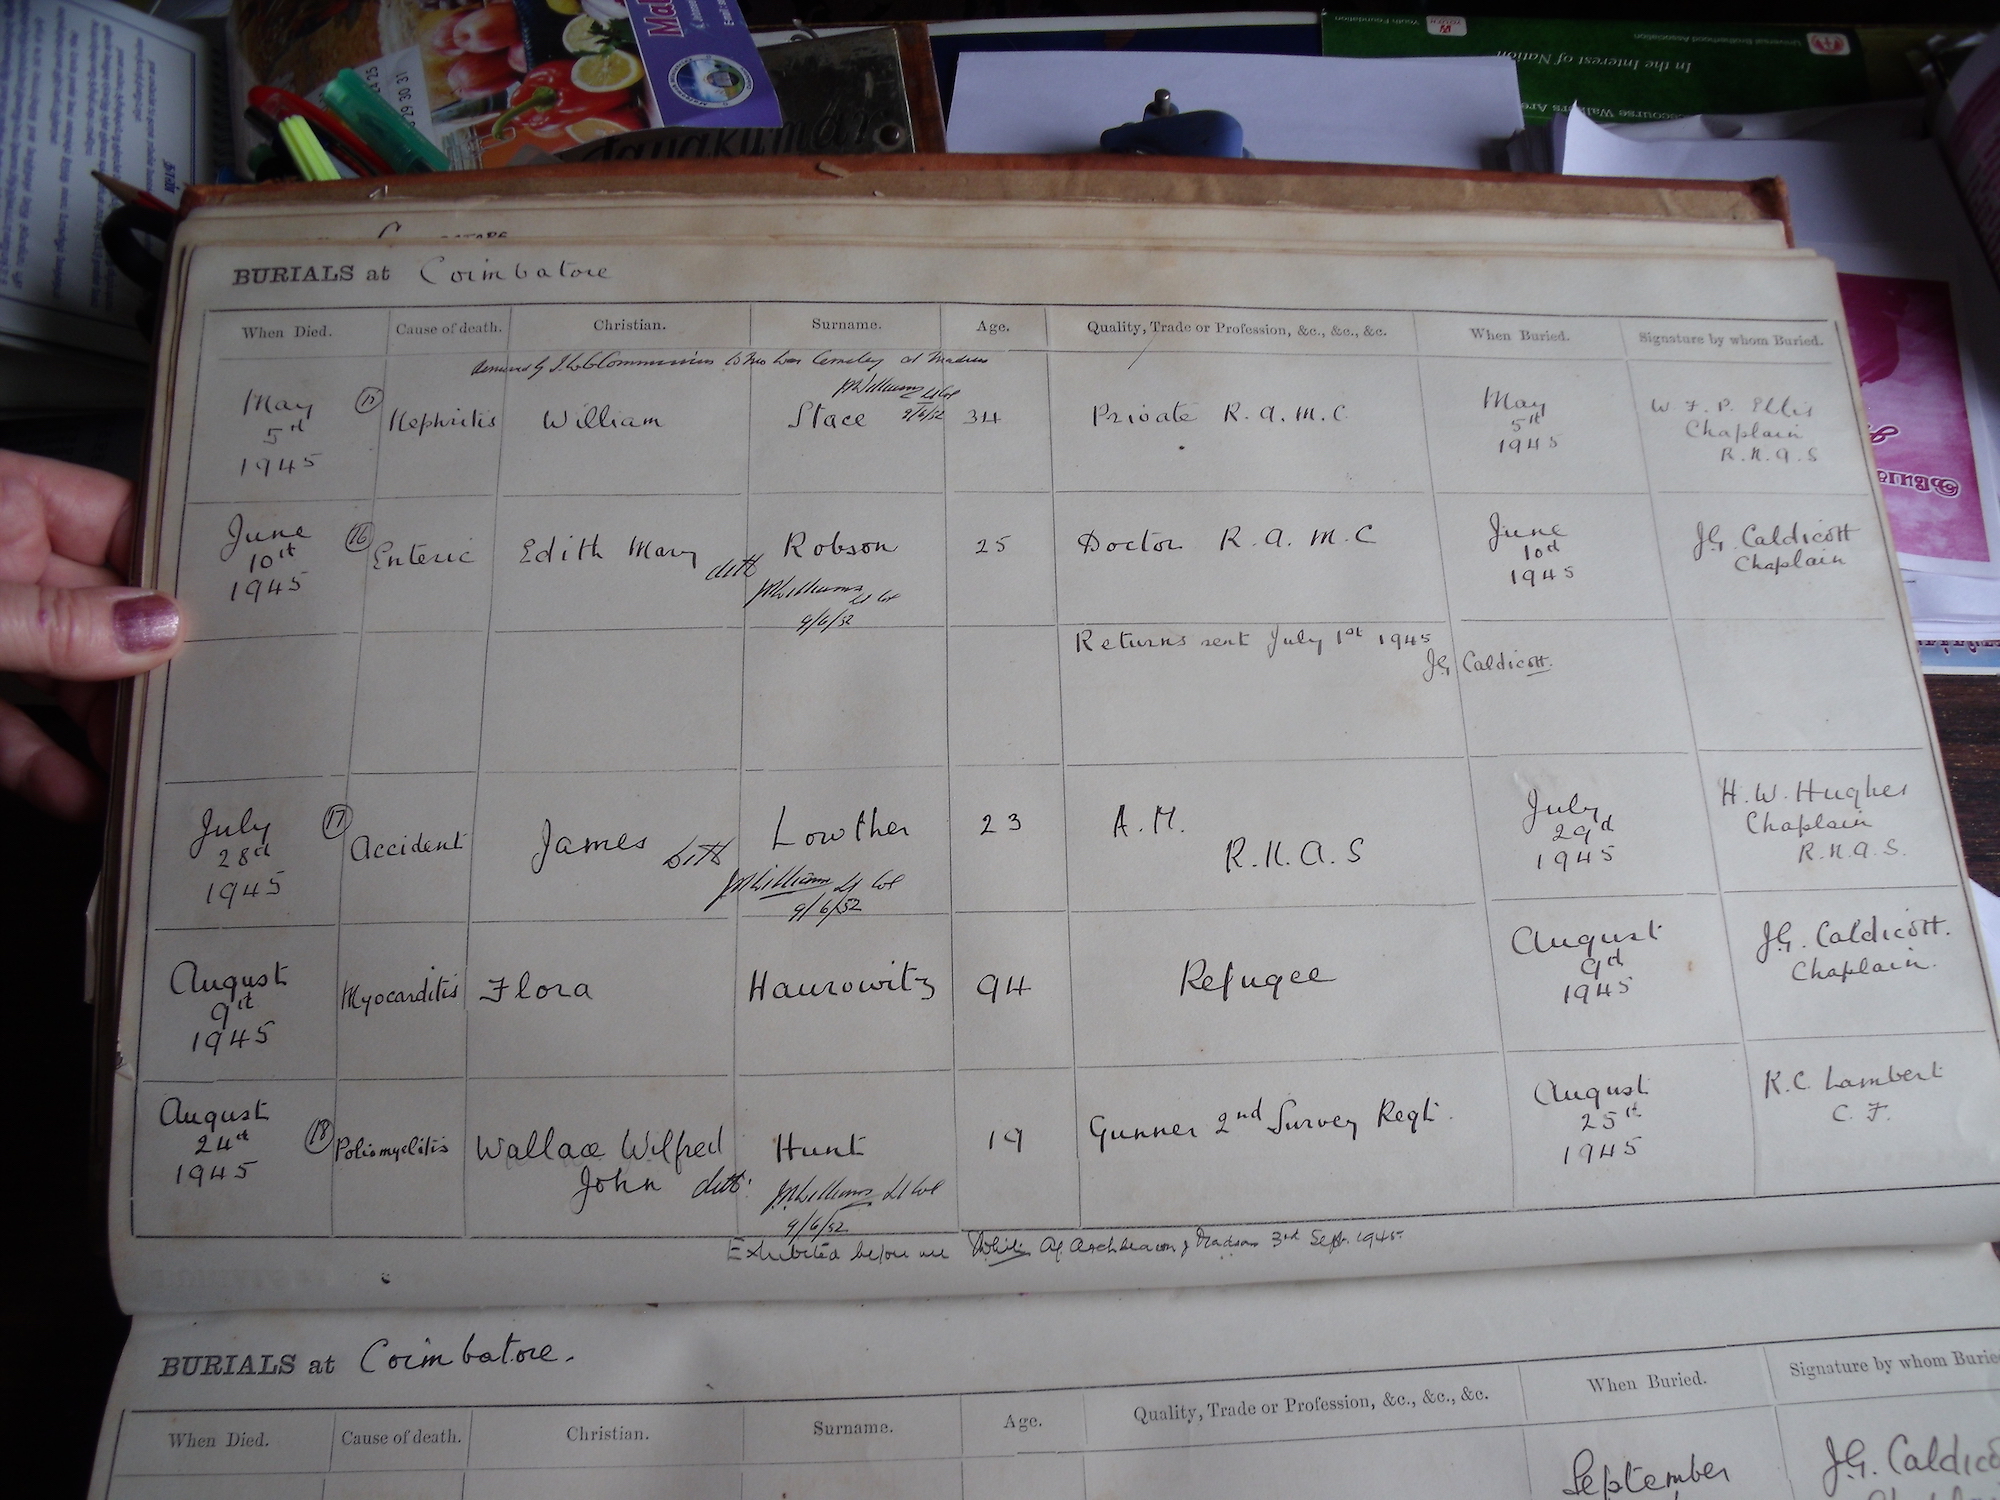 In the Interest of Nation
Universal Brotherhood Association
Youth Foundation
29 30 31
BURIALS at Coimbatore
When Died. Cause of death. Christian. Surname. Age. Quality, Trade or Profession, &c., &c., &c. When Buried. Signature by whom Buried.
Removed by I.W.G Commission to the War Cemetery at Madras
JMWilliams Lt Col
9/6/52
May 5th 1945 (15) Nephritis William Stace 34 Private R.A.M.C May 5th 1945 W.F.P. Ellis Chaplain R.N.A.S
June 10th 1945 (16) Enteric Edith Mary ditto Robson 25 Doctor R.A.M.C June 10th 1945 J.G. Caldicott Chaplain
JMWilliams Lt Col
9/6/52
Returns sent July 1st 1945
J.G. Caldicott.
July 28th 1945 (17) Accident James ditto Lowther 23 A.M. R.N.A.S July 29th 1945 H.W. Hughes Chaplain R.N.A.S.
JMWilliams Lt Col
9/6/52
August 9th 1945 Myocarditis Flora Haurowitz 94 Refugee August 9th 1945 J.G. Caldicott. Chaplain.
August 24th 1945 (18) Poliomyelitis Wallace Wilfred John ditto Hunt 19 Gunner 2nd Survey Regt. August 25th 1945 K.C. Lambert C.F.
JMWilliams Lt Col
9/6/52
Exhibited before me Ag Archdeacon of Madras 3rd Sept. 1945
BURIALS at Coimbatore.
When Died. Cause of death. Christian. Surname. Age. Quality, Trade or Profession, &c., &c., &c. When Buried. Signature by whom Buried
September J.G. Caldico